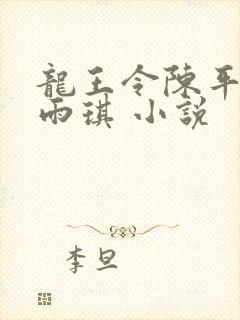 龍王令陳平
雨琪 小說
李旦